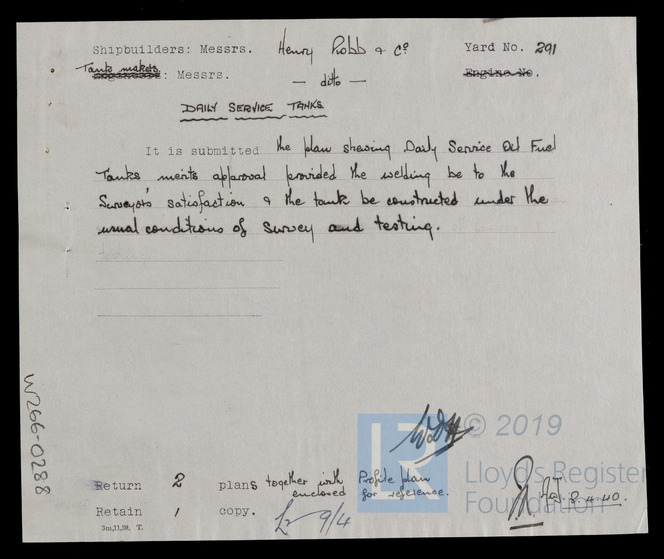 Shipbuilders: Messrs. Henry Robb & Co Yard No. 291
Tank makers: Messrs. — ditto — Engine No.
DAILY SERVICE TANKS
It is submitted the plan shewing Daily Service Oil Fuel
Tanks merits approval provided the welding be to the
Surveyor's satisfaction & the tank be constructed under the
usual conditions of survey and testing.
W266-0288
© 2019
Lloyd's Register
Foundation
LR
Return 2 plans together with enclosed Profile plan for reference.
Retain 1 copy. 9/4
8.4.40.
3m,11,39. T.